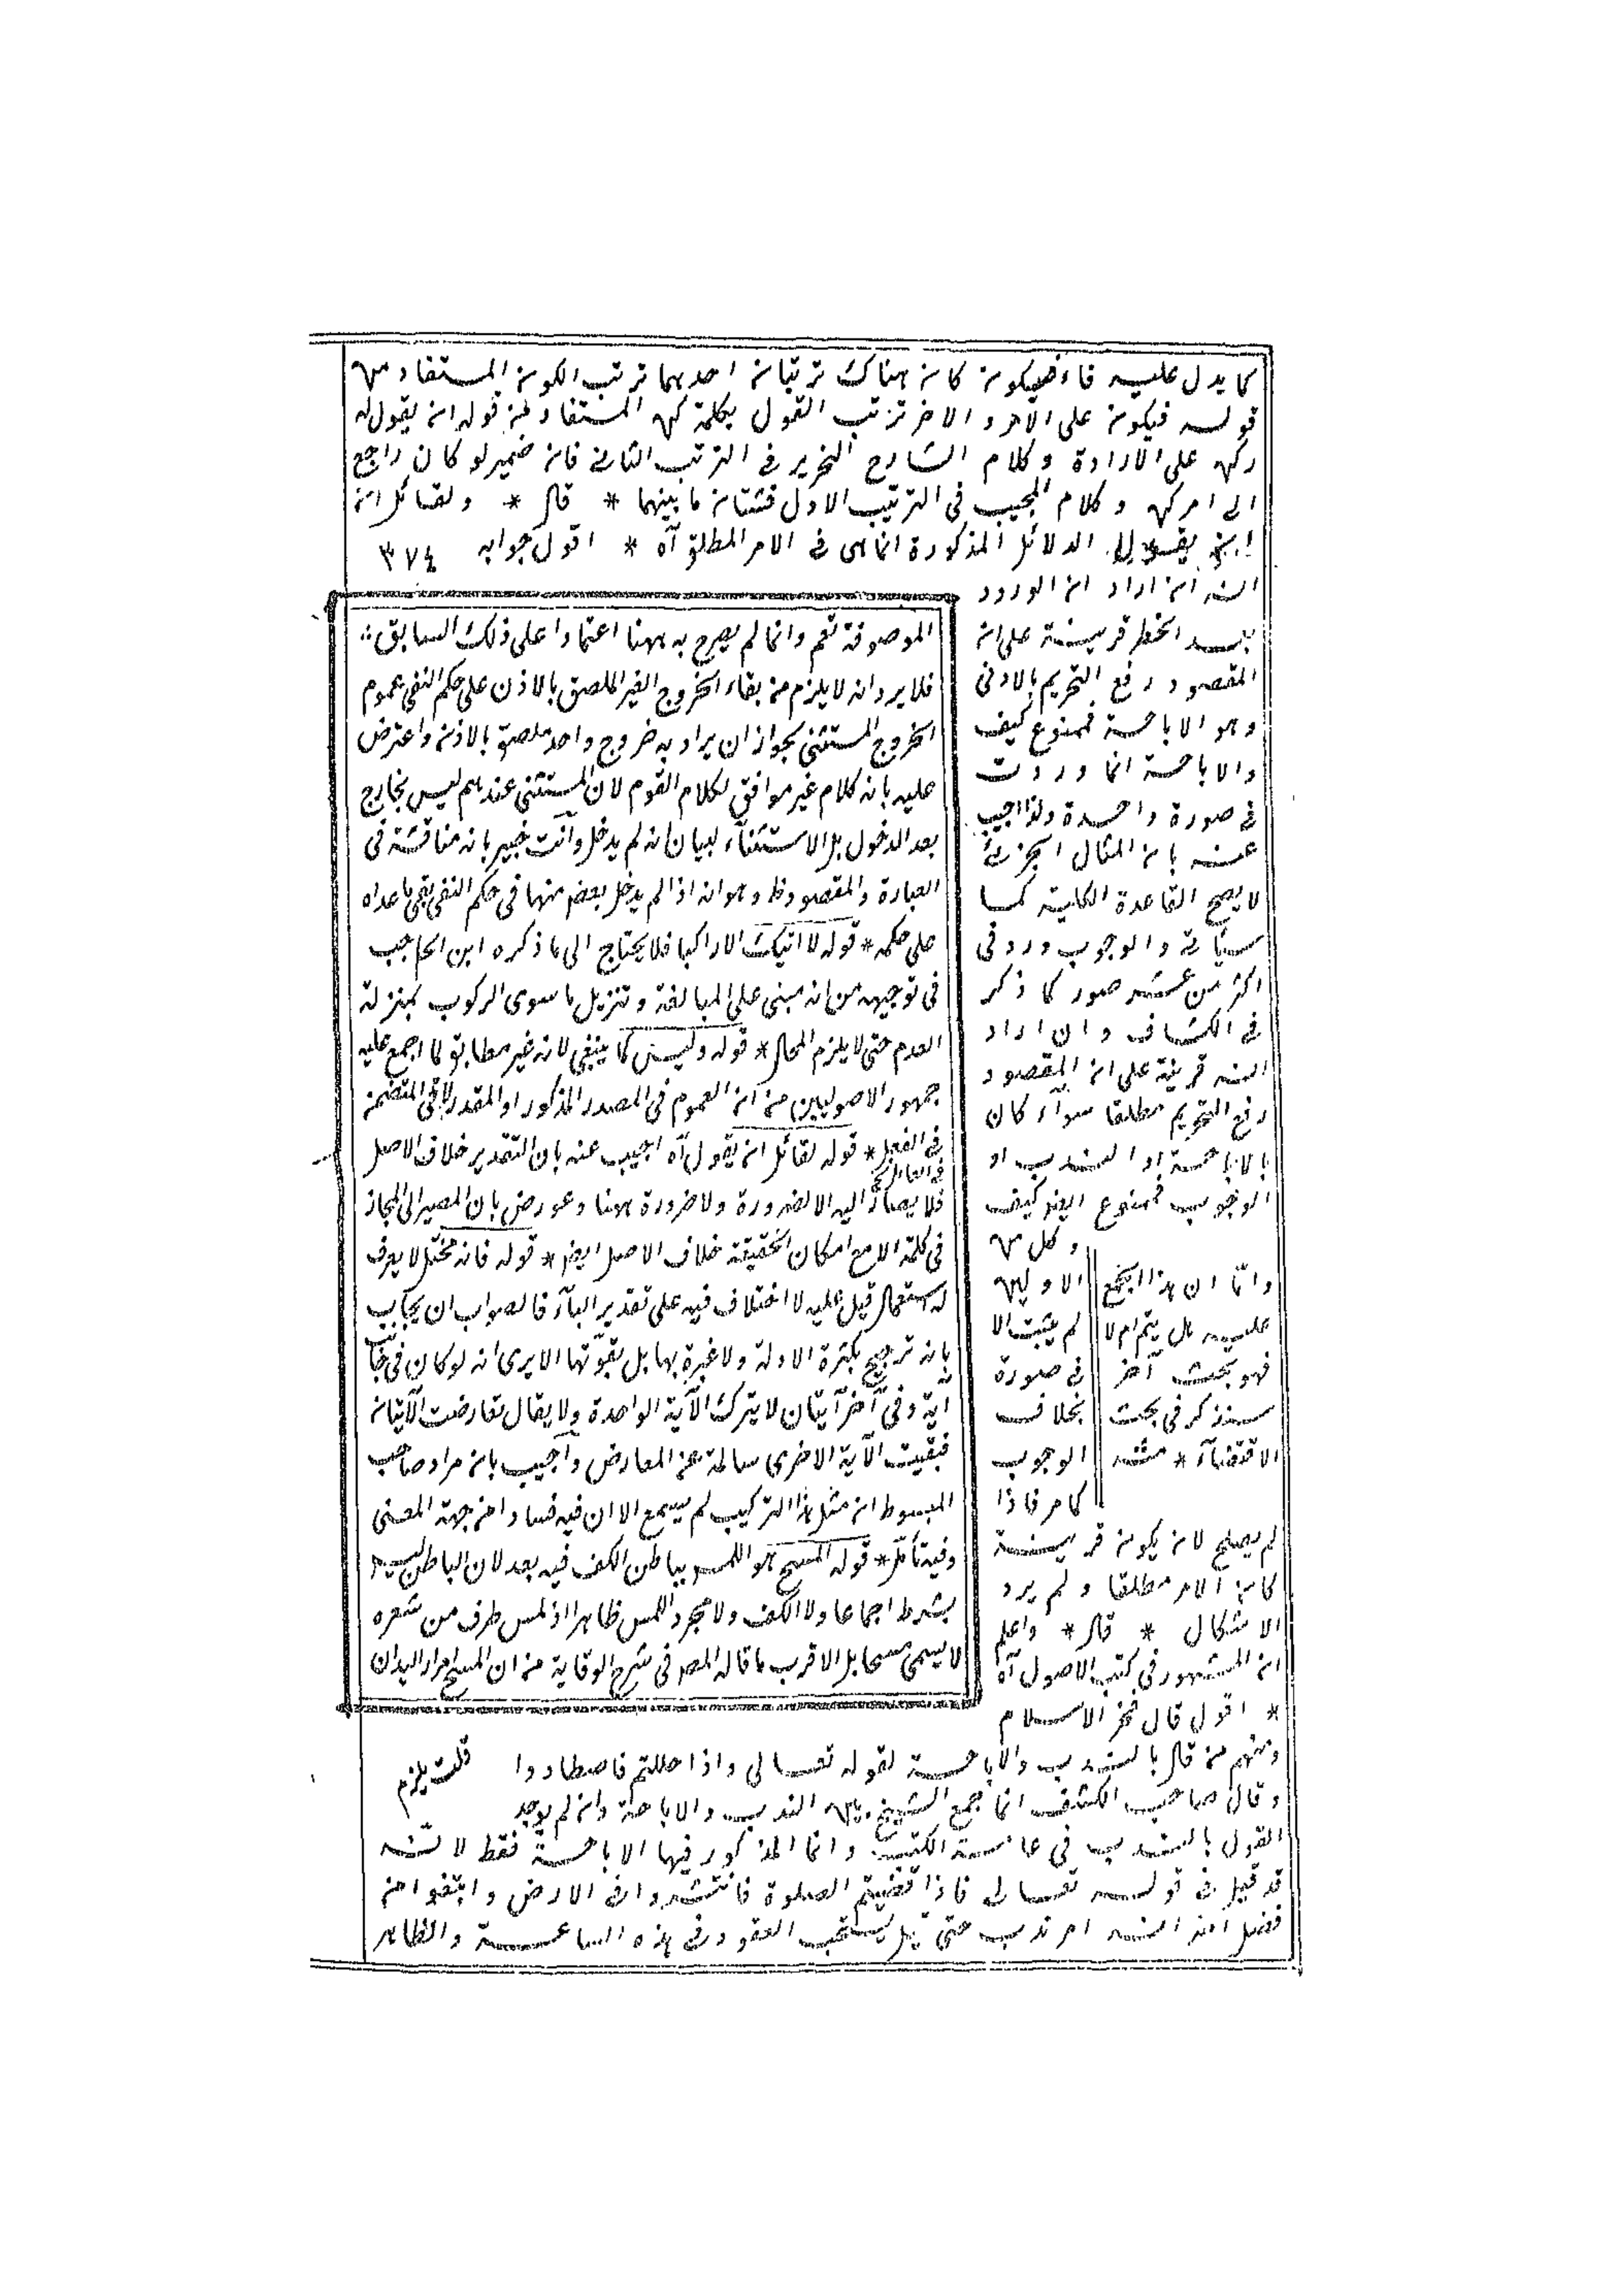 كما يدل عليه فاء فيكون كان هناك ترتبان احدهما ترتب الكون المستفاد من
قوله فيكون على الامر والاخر ترتب القول بكلمة كن المستفاد من قوله ان يقول له
كن على الارادة وكلام الشارح النحرير في الترتب الثاني فان ضمير لو كان راجع
الى امر كن وكلام المجيب في الترتيب الاول فشتان ما بينهما * قال * ولقائل ان
يقول الدلائل المذكورة انما هى فى الامر المطلق آه * اقول جوابه ٣٧٤
انه ان اراد ان الورود
بعد الحظر قرينة على ان
المقصود رفع التحريم بالادنى
وهو الاباحة فممنوع كيف
والاباحة انما وردت
في صورة واحدة ولذا اجيب
عنه بان المثال الجزئى
لا يصحح القاعدة الكلية كما
سيأتى والوجوب ورد فى
اكثر من عشر صور كما ذكر
فى الكشاف وان اراد
انه قرينة على ان المقصود
رفع التحريم مطلقا سوآء كان
بالاباحة او الندب او
الوجوب فممنوع ايضا كيف
وكل من
الاولين
لم يثبت الا
فى صورة
بخلاف
الوجوب
كما مر فاذا
لم يصلح لان يكون قرينة
كان الامر مطلقا ولم يرد
الاشكال * قال * واعلم
ان المشهور فى كتب الاصول آه
* اقول قال فخر الاسلام
ومنهم من قال بالندب والاباحة لقوله تعالى واذا حللتم فاصطادوا
وقال صاحب الكشف انما جمع الشيخ بين الندب والاباحة وان لم يوجد
القول بالندب فى عامة الكتب وانما المذكور فيها الاباحة فقط لانه
قد قيل فى قوله تعالى فاذا قضيتم الصلوة فانتشروا فى الارض وابتغوا من
فضل الله انه امر ندب حتى قيل يستحب العقود فى هذه الساعة والظاهر
واما ان هذا الجمع
عليه هل يتم ام لا
فهو بحث آخر
سنذكر فى بحث
الاقتضآء * منه
الموصوفة تعم وانما لم يصرح به ههنا اعتمادا على ذلك السابق
فلا يرد انه لا يلزم من بقاء الخروج الغير الملصق بالاذن على حكم النفى عموم
الخروج المستثنى بجواز ان يراد به خروج واحد ملصق بالاذن واعترض
عليه بانه كلام غير موافق لكلام القوم لان المستثنى عندهم ليس بخارج
بعد الدخول بل الاستثنآء لبيان انه لم يدخل وانت خبير بانه مناقشة فى
العبارة والمقصود ظ وهو انه اذا لم يدخل بعض منها فى حكم النفى بقى ما عداه
على حكمه * قوله لا اتيك الا راكبا فلا يحتاج الى ما ذكره ابن الحاجب
فى توجيهه من انه مبنى على المبالغة وتنزيل ما سوى الركوب بمنزلة
العدم حتى لا يلزم المحال * قوله وليس كما ينبغى لانه غير مطابق لما اجمع عليه
جمهور الاصوليين من ان العموم فى المصدر المذكور او المقدر المتضمن
فى الفعل * قوله لقائل ان يقول آه اجيب عنه بان التقدير خلاف الاصل
فلا يصار اليه الا لضرورة ولا ضرورة ههنا وعورض بان المصير الى المجاز
فى كلمة الا مع امكان الحقيقة خلاف الاصل ايضا * قوله فانه مختل لا يعرف
له استعمال قيل عليه لا اختلاف فيه على تقدير البآء فالصواب ان يجاب
بانه ترجيح بكثرة الادلة ولا عبرة بها بل بقوتها الا يرى انه لو كان فى جانب
اية وفى آخر آيتان لا يترك الآية الواحدة ولا يقال تعارضت الآيتان
فبقيت الآية الاخرى سالمة عن المعارض واجيب بان مراد صاحب
المبسوط ان مثل هذا التركيب لم يسمع الا ان فيه فسادا من جهة المعنى
وفيه تأمل * قوله المسح هو اللمس بباطن الكف فيه بعد لان الباطن ليس
بشرط اجماعا ولا الكف ولا مجرد اللمس ظاهرا اذ لمس طرف من شعره
لا يسمى مسحا بل الاقرب ما قاله المص فى شرح الوقاية من ان المسح امرار اليدان
قلت يلزم